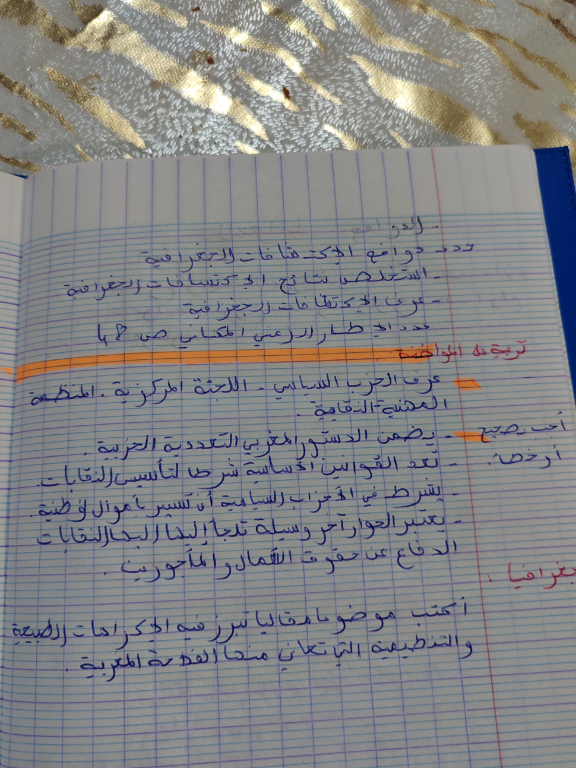 - الدوافع
حدد دوافع الاكتشافات الجغرافية
- استخلص نتائج الاكتشافات الجغرافية
- عرف الاكتشافات الجغرافية
حدد الاطار الزمني المكاني ص 48
تربية على المواطنة
- عرف الحزب السياسي - اللجنة المركزية - المنظمة
المهنية النقابية .
أجب بصحيح - يضمن الدستور المغربي التعددية الحزبية .
أو خطأ : - تعد القوانين الأساسية شرطا لتأسيس النقابات
- يشرط في الأحزاب السياسية أن تسير بأموال وطنية .
- يعتبر الحوار آخر وسيلة تلجأ إليها النقابات
الدفاع عن حقوق العمال والمأجورين .
غرافيا :
أكتب موضوعا مقاليا تبرز فيه الإكراهات الطبيعية
والتنظيمية التي تعاني منها الفلاحة المغربية .